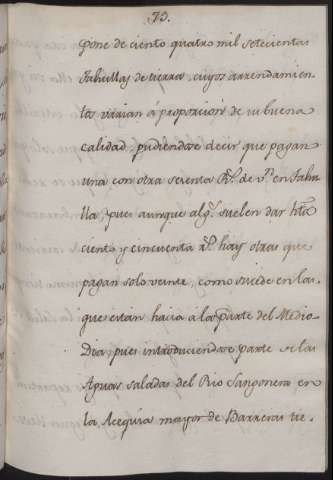 73.
pone de ciento quatro mil setecientas
tahullas de tierra, cuyos arrendamien-
tos varian á proporcion de su buena
calidad, pudiendose decir que pagan
una con otra sesenta Rs. de vn. en tahu
lla, pues aunque algs. suelen dar hta.
ciento y cincuenta rs. hay otras que
pagan solo veinte, como suede en las
que están hacia a la parte del Medio-
Dia, pues introduciendose parte de las
Aguas saladas del Rio Sangonera en
la Acequia mayor de Barreras tie-